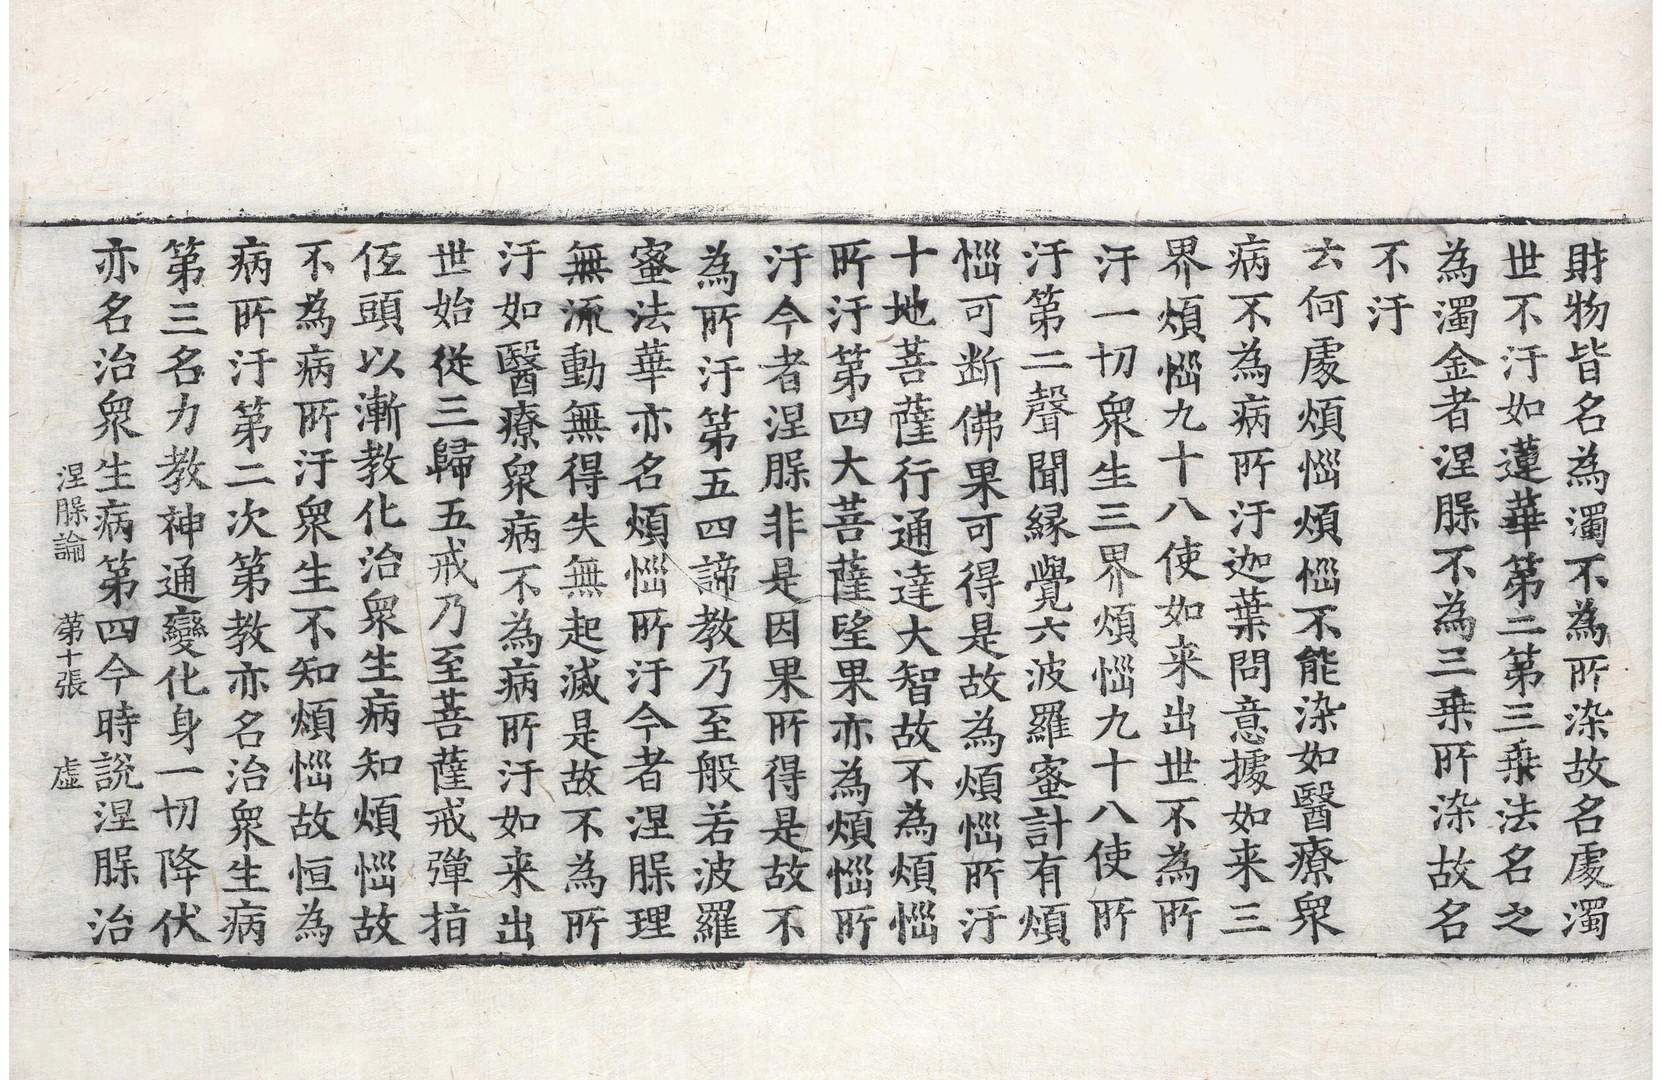 財物皆名為濁不為所染故名處濁
世不汙如蓮華第二第三乗法名之
為濁金者涅槃不為三乗所染故名
不汙
云何處煩惱煩惱不能染如醫療衆
病不為病所汙迦葉問意據如来三
界煩惱九十八使如来出世不為所
汙一切衆生三界煩惱九十八使所
汙第二聲聞縁覺六波羅蜜計有煩
惱可断佛果可得是故為煩惱所汙
十地菩薩行通達大智故不為煩惱
所汙第四大菩薩望果亦為煩惱所
汙今者涅槃非是因果所得是故不
為所汙第五四諦教乃至般若波羅
蜜法華亦名煩惱所汙今者涅槃理
無流動無得失無起滅是故不為所
汙如醫療衆病不為病所汙如来出
世始從三歸五戒乃至菩薩戒彈指
伍頭以漸教化治衆生病知煩惱故
不為病所汙衆生不知煩惱故恒為
病所汙第二次第教亦名治衆生病
第三名力教神通變化身一切降伏
亦名治衆生病第四今時說涅槃治
涅槃論 第十張 虛